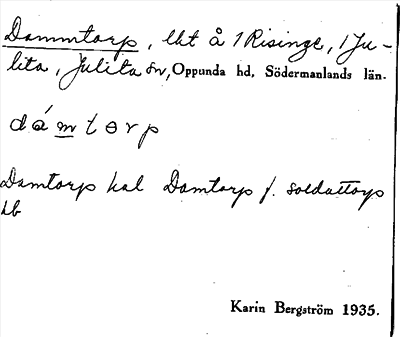 Dammtorp, lht å 1 Risinge, 1 Ju-
lita, Julita sn, Oppunda hd, Södermanlands län.
dámtɵrp
Damtorp kal Damtorp f. soldattorp
Karin Bergström 1935.